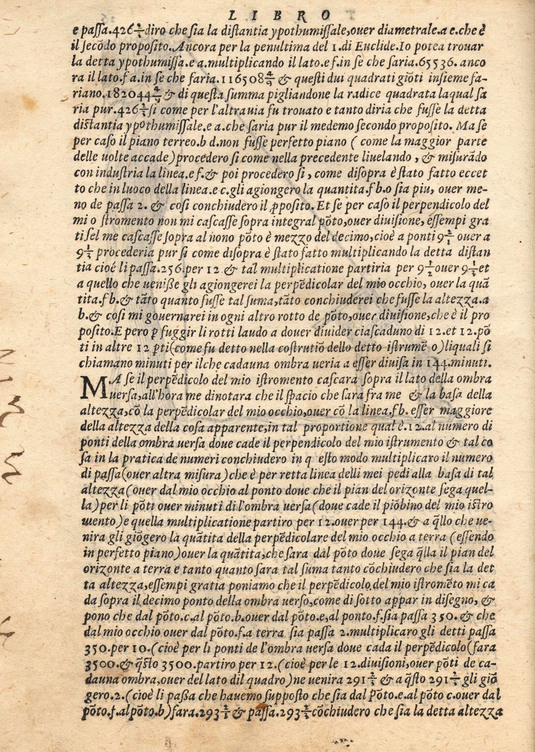 LIBRO
e passa.426 2/3 diro che sia la distantia ypothumissale,ouer diametrale.a e.che è
il secōdo proposito.Ancora per la penultima del 1.di Euclide.Io potea trouar
la detta ypothumissa.e a.multiplicando il lato.e f.in se che saria.65536.anco
ra il lato.f a.in se che saria.116508 4/9 & questi dui quadrati giōti insieme fa-
riano.182044 4/9 & di questa summa pigliandone la radice quadrata laqual sa
ria pur.426 2/3 si come per l'altra uia fu trouato e tanto diria che fusse la detta
distantia ypothumissale.e a.che saria pur il medemo secondo proposito. Ma se
per caso il piano terreo.b d.non fusse perfetto piano ( come la maggior parte
delle uolte accade) procedero si come nella precedente liuelando , & misurādo
con industria la linea.e f.& poi procedero si , come disopra è stato fatto eccet
to che in luoco della linea.e c.gli agiongero la quantita.f b.o sia piu, ouer me-
no de passa 2. & cosi conchiudero il pposito. Et se per caso il perpendicolo del
mi o stromento non mi cascasse sopra integral pōto,ouer diuisione,essempi gra
ti sel me cascasse sopra al nono pōto è mezzo del decimo,cioè a ponti 9 1/2 ouer a
9 1/2 procederia pur si come disopra è stato fatto multiplicando la detta distan
tia cioè li passa.256.per 12.& tal multiplicatione partiria per 9 1/2 ouer 9 1/2 et
a quello che uenisse gli agiongerei la perpēdicolar del mio occhio, ouer la quā
tita.f b.& tāto quanto fusse tal suma,tāto conchiuderei che fusse l'altezza.a
b.& cosi mi gouernarei in ogni altro rotto de pōto,ouer diuisione,che è il pro
posito.E pero p fuggir li rotti laudo a douer diuider ciascaduno di 12.et 12.pō
ti in altre 12 pti(come fu detto nella costrutiō dello detto istrumē o)liquali si
chiamano minuti per ilche cadauna ombra ueria a esser diuisa in 144.minuti.
MA se il perpēdicolo del mio istromento cascara sopra il lato della ombra
uersa,all'hora me dinotara che il spacio che sara fra me & la basa della
altezza,cō la perpēdicolar del mio occhio,ouer cō la linea.f b.esser maggiore
della altezza della cosa apparente,in tal proportione qual è.12.al numero di
ponti della ombra uersa doue cade il perpendicolo del mio istrumento & tal co
sa in la pratica de numeri conchiudero in q esto modo multiplicaro il numero
di passa(ouer altra misura)che è per retta linea delli mei pedi alla basa di tal
altezza(ouer dal mio occhio al ponto doue che il pian del orizonte sega quel-
la)per li pōti ouer minuti di l'ombra uersa(doue cade il piōbino del mio istro
mento)e quella multiplicatione partiro per 12.ouer per 144.& a qllo che ue-
nira gli giōgero la quātita della perpēdicolare del mio occhio a terra (essendo
in perfetto piano)ouer la quātita,che sara dal pōto doue sega qlla il pian del
orizonte a terra e tanto quanto sara tal summa tanto cōchiudero che sia la det
ta altezza,essempi gratia poniamo che il perpēdicolo del mio istromēto mi ca
da sopra il decimo ponto della ombra uersa,come di sotto appar in disegno, &
pono che dal pōto.c.al pōto.b.ouer dal pōto.e,al ponto.f.sia passa 350.& che
dal mio occhio ouer dal pōto.f.a terra sia passa 2.multiplicaro gli detti passa
350.per 10.(cioè per li ponti de l'ombra uersa doue cada il perpēdicolo(fara
3500.& qsto 3500.partiro per 12.(cioè per le 12.diuisioni,ouer pōti de ca-
dauna ombra.ouer del lato dil quadro)ne uenira 291 2/3 & a qsto 291 2/3 gli giō
gero.2.(cioè li passa che hauemo supposto che sia dal pōto.e.al pōto c.ouer dal
pōto.f.al pōto.b)fara.293 2/3 & passa.293 2/3 cōchiudero che sia la detta altezza